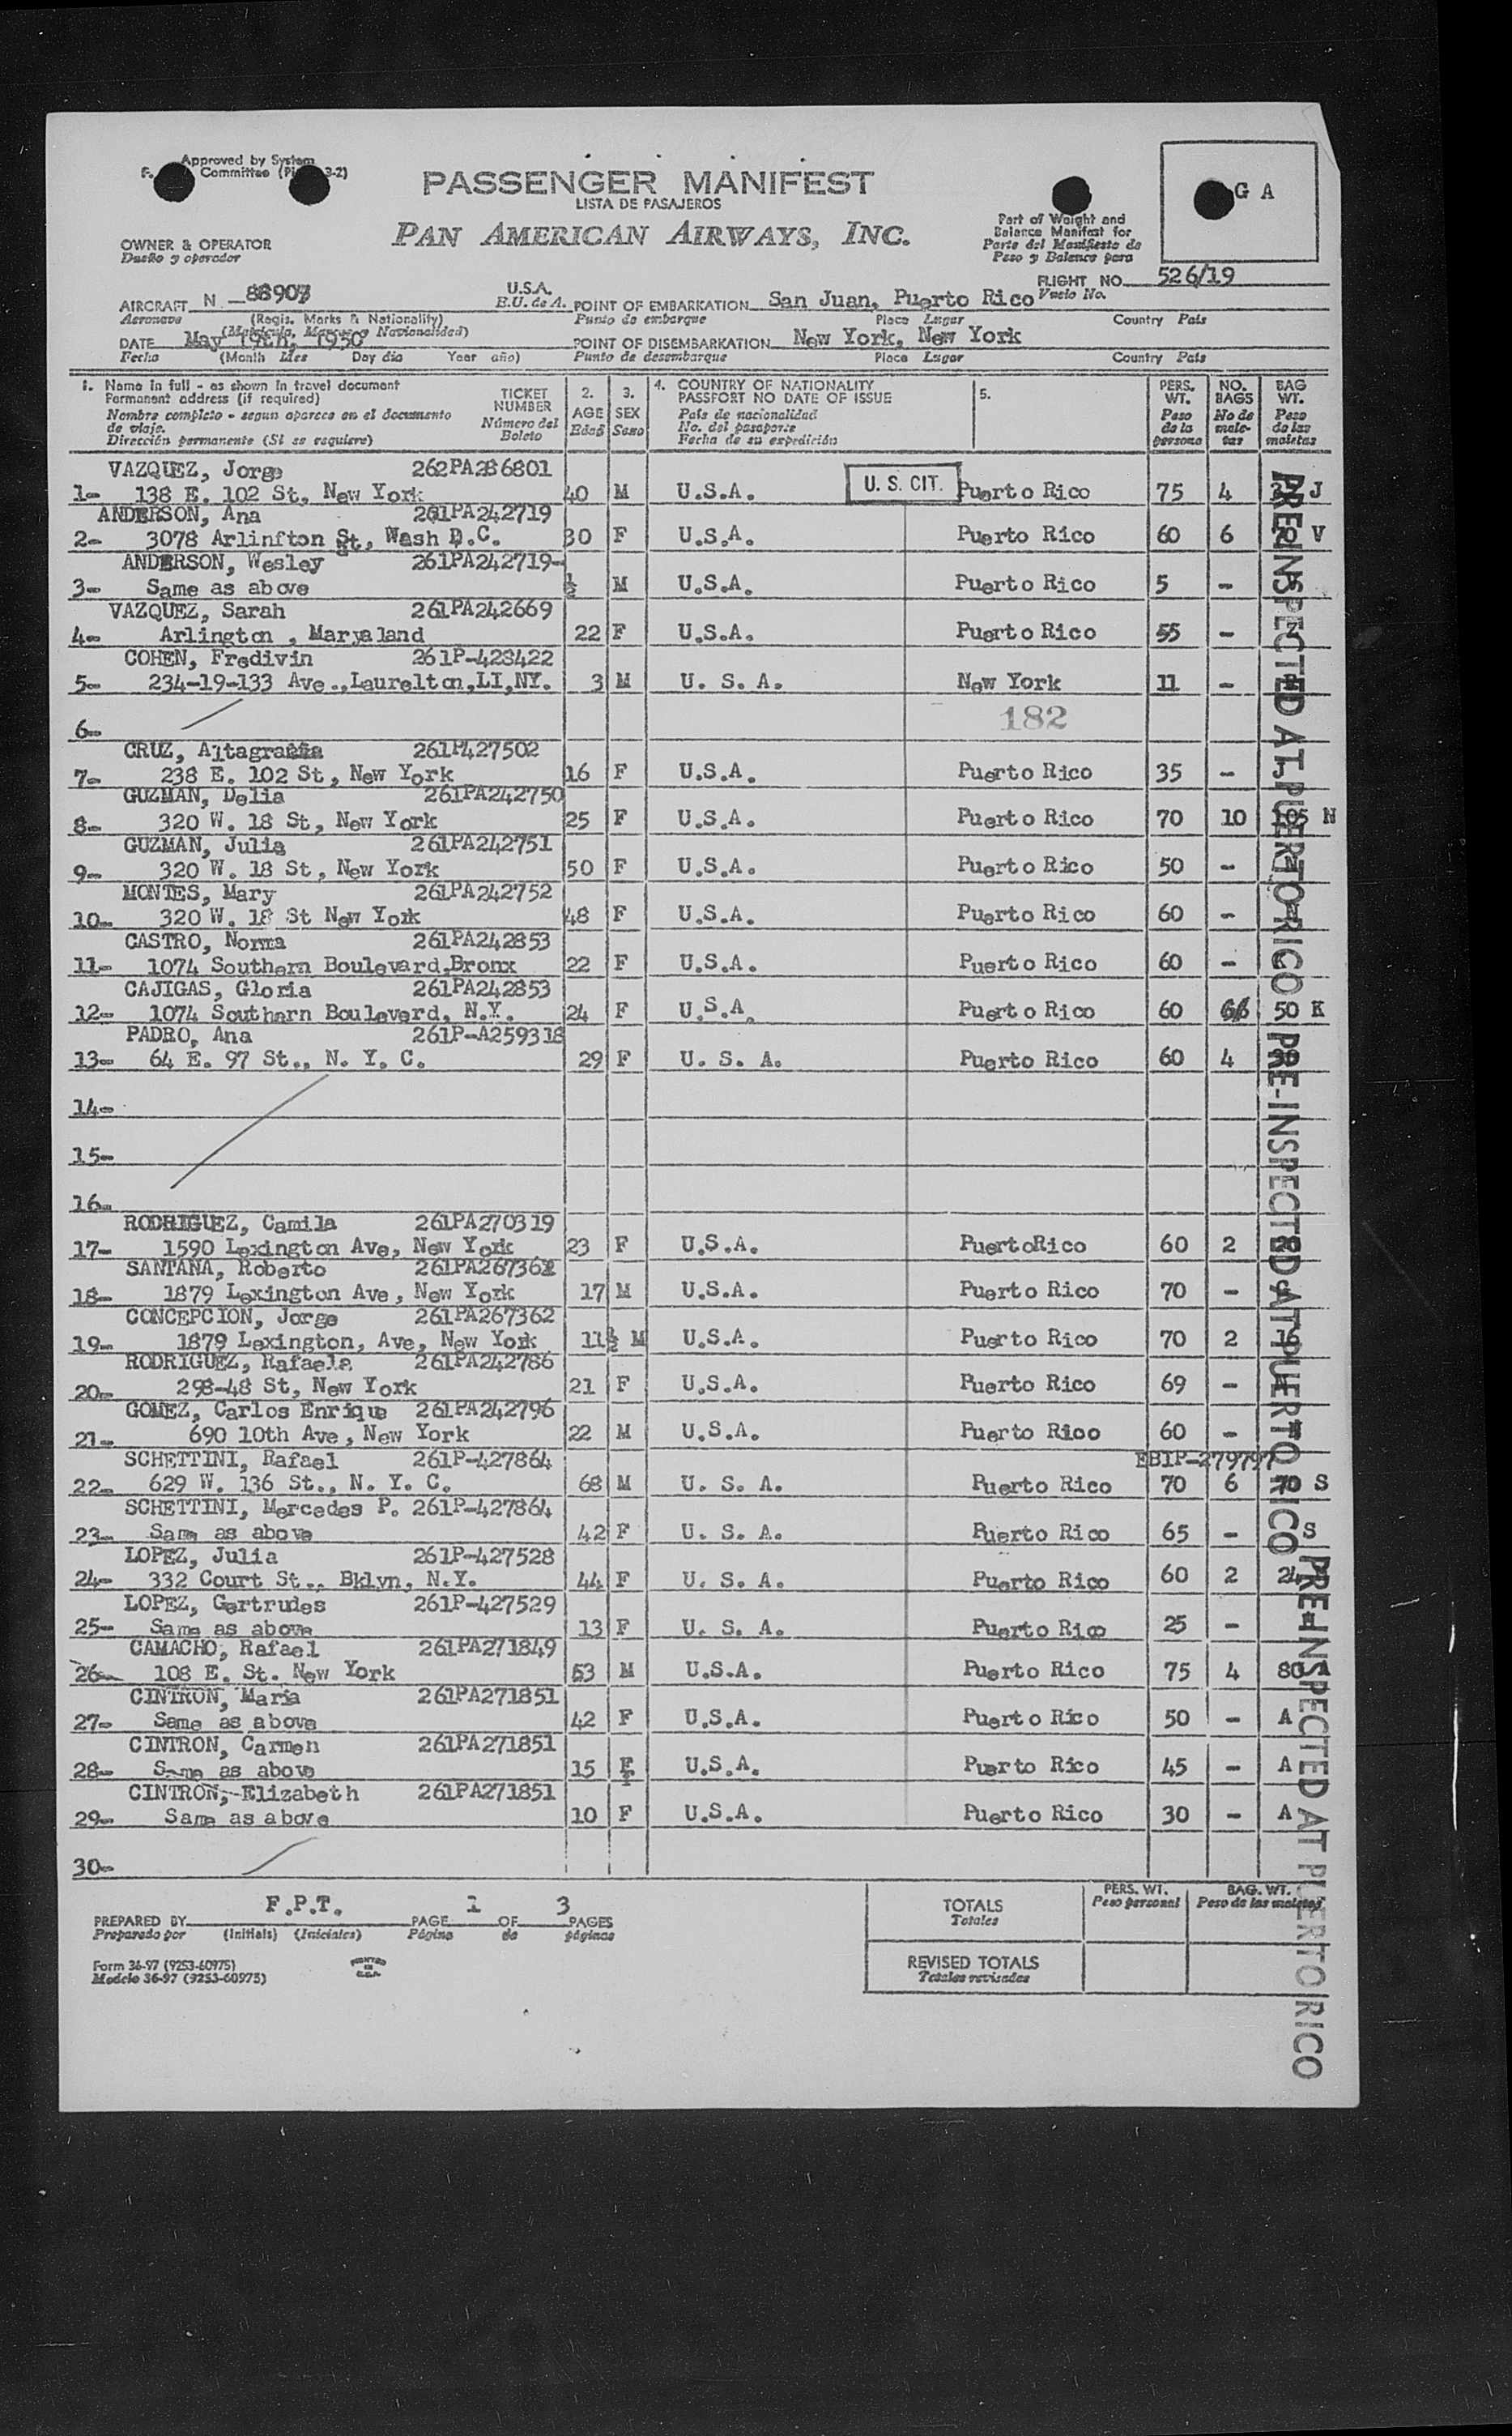 Approved by System
Committee 3-2)
G A
PASSENGER MANIFEST
LISTA DE PASAJEROS
PAN AMERICAN AIRWAYS, INC.
Part of Weight and
Balance Manifest for
Parte del Manifiesto de
Peso y Balance para
OWNER & OPERATOR
Dueño y operador
FLIGHT NO. 526/19
Vuelo No.
AIRCRAFT N U.S.A. POINT OF EMBARKATION San Juan, Puerto Rico
Aeronave (Regis. Marks & Nationality) E.U. de A. Punto de embarque Place Lugar Country País
(Matrícula, Marcas y Nacionalidad)
DATE May 19th, 1950 POINT OF DISEMBARKATION New York, New York
Fecha (Month Mes Day día Year año) Punto de desembarque Place Lugar Country País
1. Name in full - as shown in travel document
Permanent address (if required)
Nombre completo - segun aparece en el documento
de viaje.
Dirección permanente (Si se requiere)
TICKET
NUMBER
Número del
Boleto
2.
AGE
Edad
3.
SEX
Sexo
4. COUNTRY OF NATIONALITY
PASSPORT NO DATE OF ISSUE
País de nacionalidad
No. del pasaporte
Fecha de su expedición
5.
PERS.
WT.
Peso
de la
persona
NO.
BAGS
No de
male-
tas
BAG
WT.
Peso
de las
maletas
VAZQUEZ, Jorge 262PA286801
1- 138 E. 102 St, New York 40 M U.S.A. U. S. CIT. Puerto Rico 75 4 J
ANDERSON, Ana 261PA242719
2- 3078 Arlinfton St, Wash D.C. 30 F U.S.A. Puerto Rico 60 6 V
ANDERSON, Wesley 261PA242719-
3- Same as above ½ M U.S.A. Puerto Rico 5 -
VAZQUEZ, Sarah 261PA242669
4- Arlington , Maryaland 22 F U.S.A. Puerto Rico 55 -
COHEN, Fredivin 261P-428422
5- 234-19-133 Ave.,Laurelton,LI,NY. 3 M U. S. A. New York 11 -
6- 182
CRUZ, Altagracia 261P427502
7- 238 E. 102 St, New York 16 F U.S.A. Puerto Rico 35 -
GUZMAN, Delia 261PA242750
8- 320 W. 18 St, New York 25 F U.S.A. Puerto Rico 70 10 105 N
GUZMAN, Julia 261PA242751
9- 320 W. 18 St, New York 50 F U.S.A. Puerto Rico 50 -
MONTES, Mary 261PA242752
10- 320 W. 18 St New York 48 F U.S.A. Puerto Rico 60 -
CASTRO, Norma 261PA242853
11- 1074 Southern Boulevard,Bronx 22 F U.S.A. Puerto Rico 60 -
CAJIGAS, Gloria 261PA242853
12- 1074 Southern Boulevard, N.Y. 24 F U.S.A. Puerto Rico 60 50 K
PADRO, Ana 261P-A259318
13- 64 E. 97 St., N. Y. C. 29 F U. S. A. Puerto Rico 60 4
14-
15-
16-
RODRIGUEZ, Camila 261PA270319
17- 1590 Lexington Ave, New York 23 F U.S.A. PuertoRico 60 2
SANTANA, Roberto
18- 1879 Lexington Ave, New York 17 M U.S.A. Puerto Rico 70 -
CONCEPCION, Jorge 261PA267362
19- 1879 Lexington, Ave, New York 11½ M U.S.A. Puerto Rico 70 2
RODRIGUEZ, Rafaela 261PA242786
20- 298-48 St, New York 21 F U.S.A. Puerto Rico 69 -
GOMEZ, Carlos Enrique 261PA242796
21- 690 10th Ave, New York 22 M U.S.A. Puerto Rico 60 -
SCHETTINI, Rafael 261P-427864 EBIP-279797
22- 629 W. 136 St., N. Y. C. 68 M U. S. A. Puerto Rico 70 6 70 S
SCHETTINI, Mercedes P. 261P-427864
23- Same as above 42 F U. S. A. Puerto Rico 65 - S
LOPEZ, Julia 261P-427528
24- 332 Court St., Bklyn, N.Y. 44 F U. S. A. Puerto Rico 60 2 24
LOPEZ, Gertrudes 261P-427529
25- Same as above 13 F U. S. A. Puerto Rico 25 -
CAMACHO, Rafael 261PA271849
26- 108 E. St. New York 53 M U.S.A. Puerto Rico 75 4 80 A
CINTRON, Maria 261PA271851
27- Same as above 42 F U.S.A. Puerto Rico 50 - A
CINTRON, Carmen 261PA271851
28- Same as above 15 F U.S.A. Puerto Rico 45 - A
CINTRON, Elizabeth 261PA271851
29- Same as above 10 F U.S.A. Puerto Rico 30 - A
30-
PRE-INSPECTED AT PUERTO RICO
PRE-INSPECTED AT PUERTO RICO
PRE-INSPECTED AT PUERTO RICO
PREPARED BY F.P.T. PAGE 1 OF 3 PAGES
Preparado por (Initials) (Iniciales) Página de páginas
TOTALS
Totales
PERS. WT.
Peso personal
BAG. WT.
Peso de las maletas
REVISED TOTALS
Totales revisados
Form 36-97 (9253-60975)
Modelo 36-97 (9253-60975)
PRINTED
IN
U.S.A.